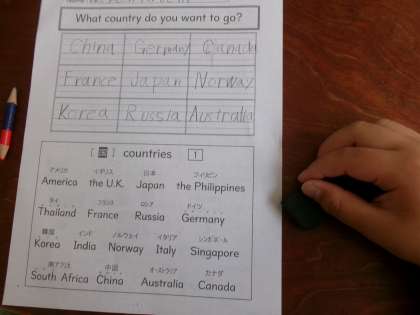 What country do you want to go?
China Germany Canada
France Japan Norway
Korea Russia Australia
[国] countries 1
アメリカ イギリス 日本 フィリピン
America the U.K. Japan the Philippines
タイ フランス ロシア ドイツ
Thailand France Russia Germany
韓国 インド ノルウェイ イタリア シンガポール
Korea India Norway Italy Singapore
南アフリカ 中国 オーストラリア カナダ
South Africa China Australia Canada